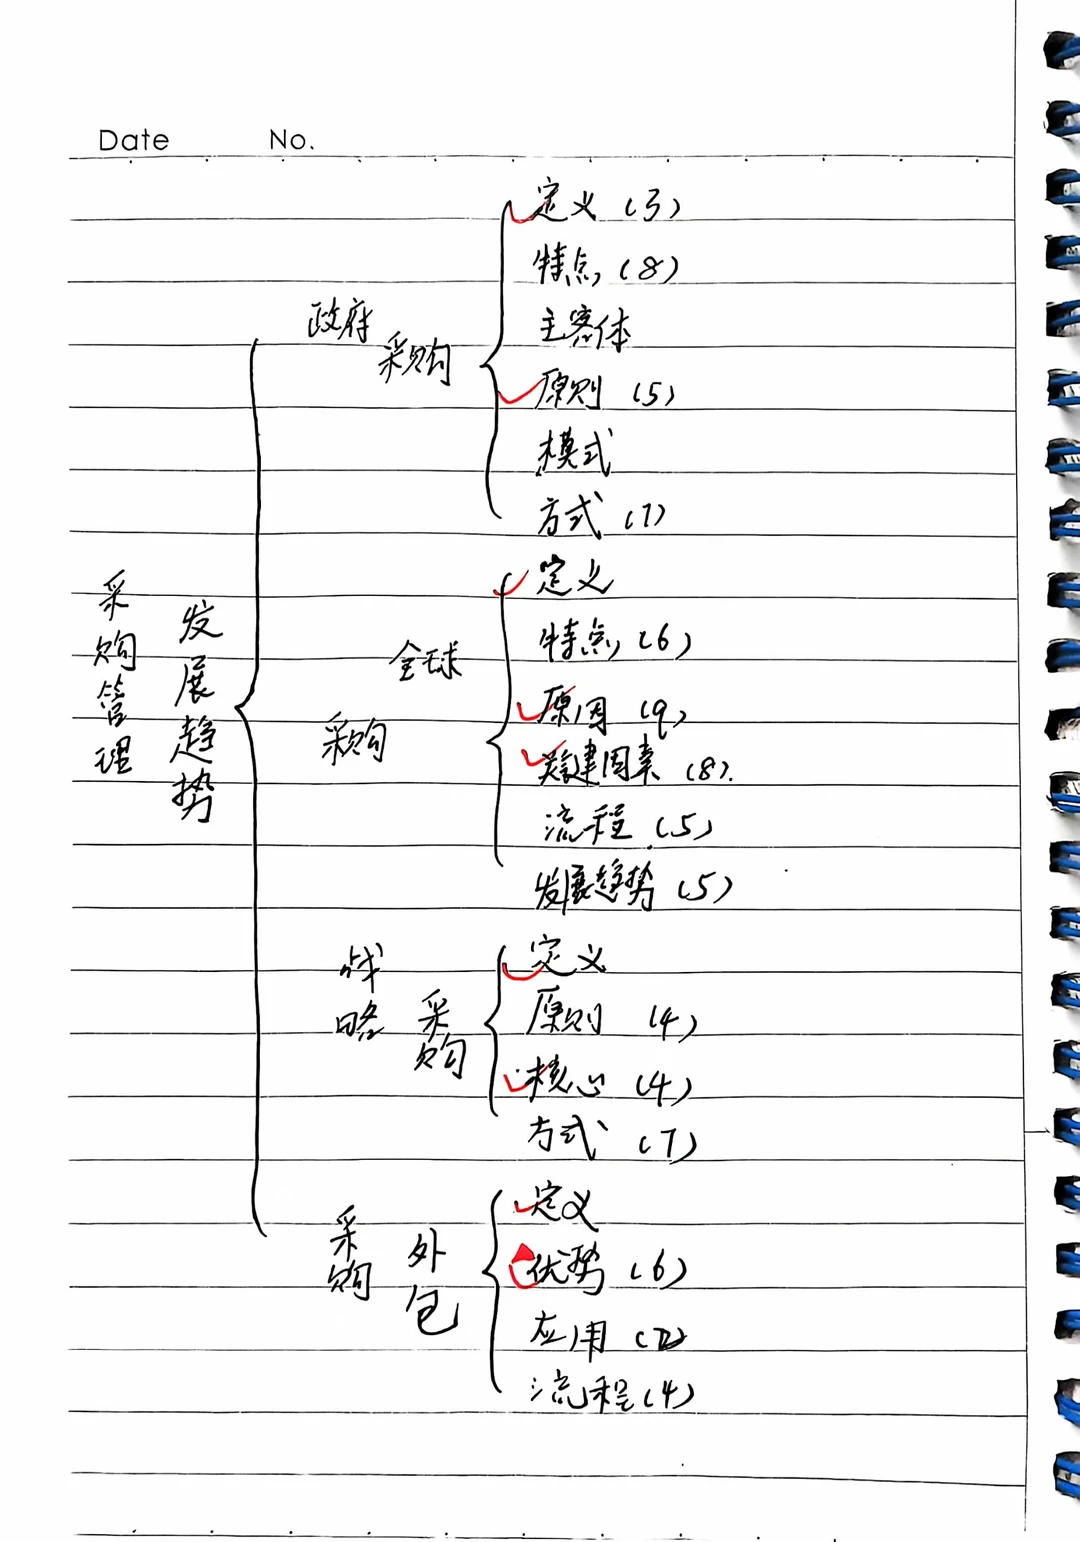 Date No.
采购管理
发展趋势
政府采购
定义(3)
特点(8)
主客体
原则(5)
模式
方式(7)
全球采购
定义
特点(6)
原因(9)
关键因素(8).
流程(5)
发展趋势(5)
战略采购
定义
原则(4)
核心(4)
方式(7)
采购外包
定义
优势(6)
应用
流程(4)